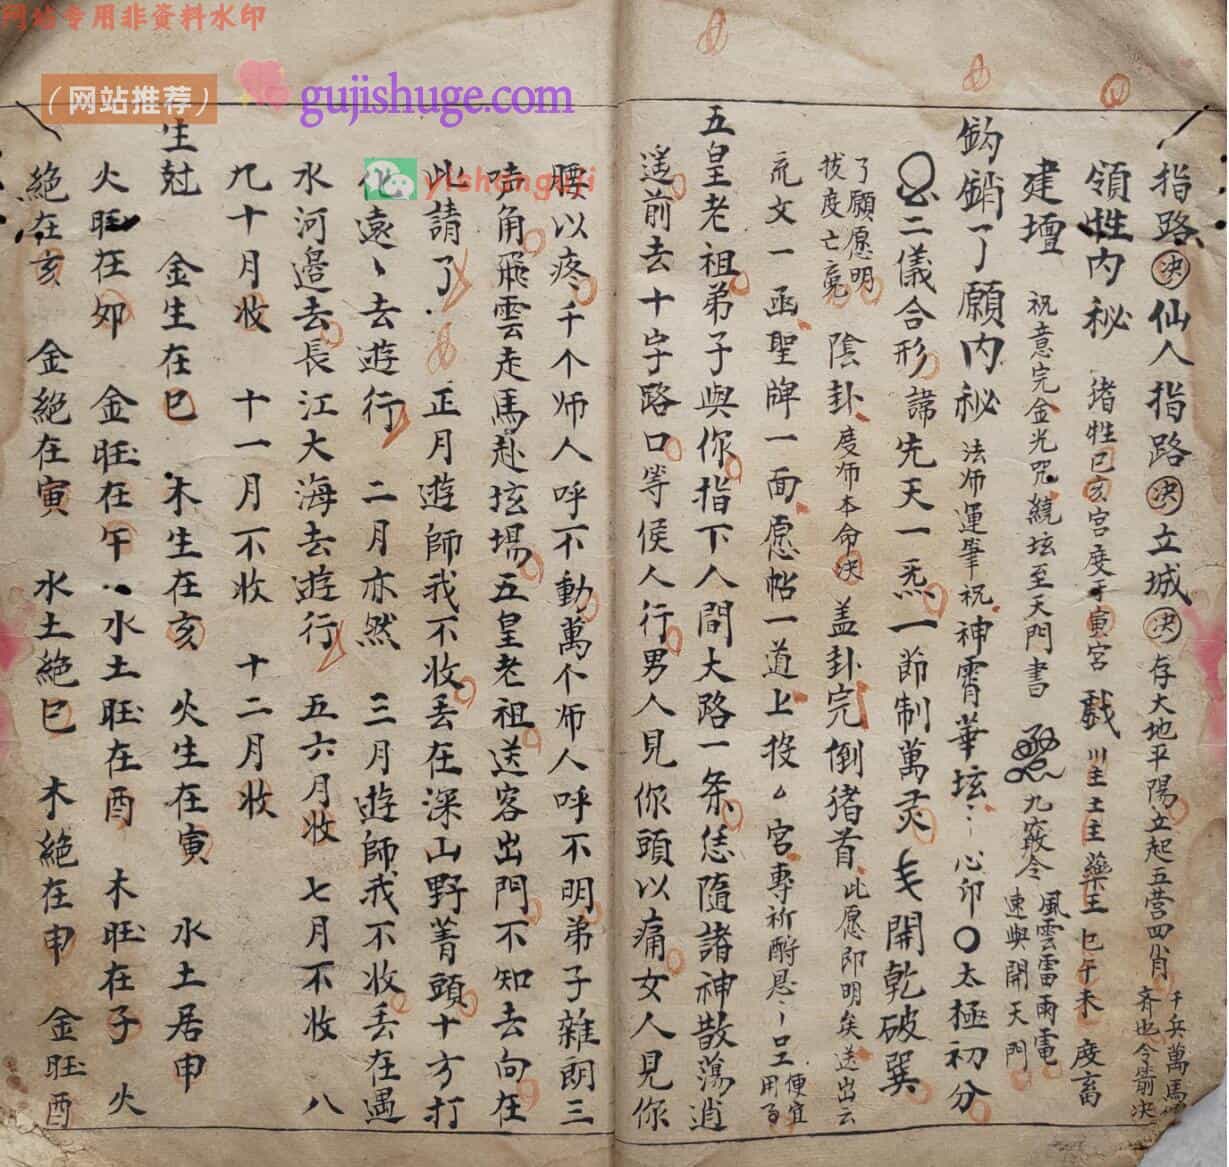 网站专用非资料水印
（网站推荐）
gujishuge.com
yishanguji
指路决仙人指路决立城决存大地平陽立起五营四肖千兵萬馬
齐也令箭决
領牲内秘 猪牲巳亥宫度于寅宫 戲 川主土主藥王巳午未度畜
建壇 祝意完金光咒繞坛至天門書 九竅令 風雲雷雨電
速與開天門
鈎銷了願内秘 法师運筆祝神霄華坛 心卯〇太極初分
二儀合形 諱先天一炁一節制萬灵 開乾破巽
了願愿明
拔度亡 陰卦 度师本命决 盖卦完倒猪首 此愿即明矣送出云
疏文一函聖牌一面愿帖一道上投ム宫專祈酧恩 便宜
用
五皇老祖弟子與你指下人間大路一条恁隨諸神散蕩逍
遥前去十字路口等侯人行男人見你頭以痛女人見你
腰以疼千个师人呼不動萬个师人呼不明弟子雜朗三
声角飛雲走馬赴坛場五皇老祖送客出門不知去向在
此請了 正月遊師我不收丢在深山野菁頭十方打
化遠丶去遊行 二月亦然 三月遊師我不收丢在遇
水河邉去長江大海去遊行 五六月收 七月不收 八
九十月收 十一月不收 十二月收
生尅 金生在巳 木生在亥 火生在寅 水土居申
火旺在卯 金旺在午 水土旺在酉 木旺在子 火
絶在亥 金絶在寅 水土絶巳 木絶在申 金旺酉